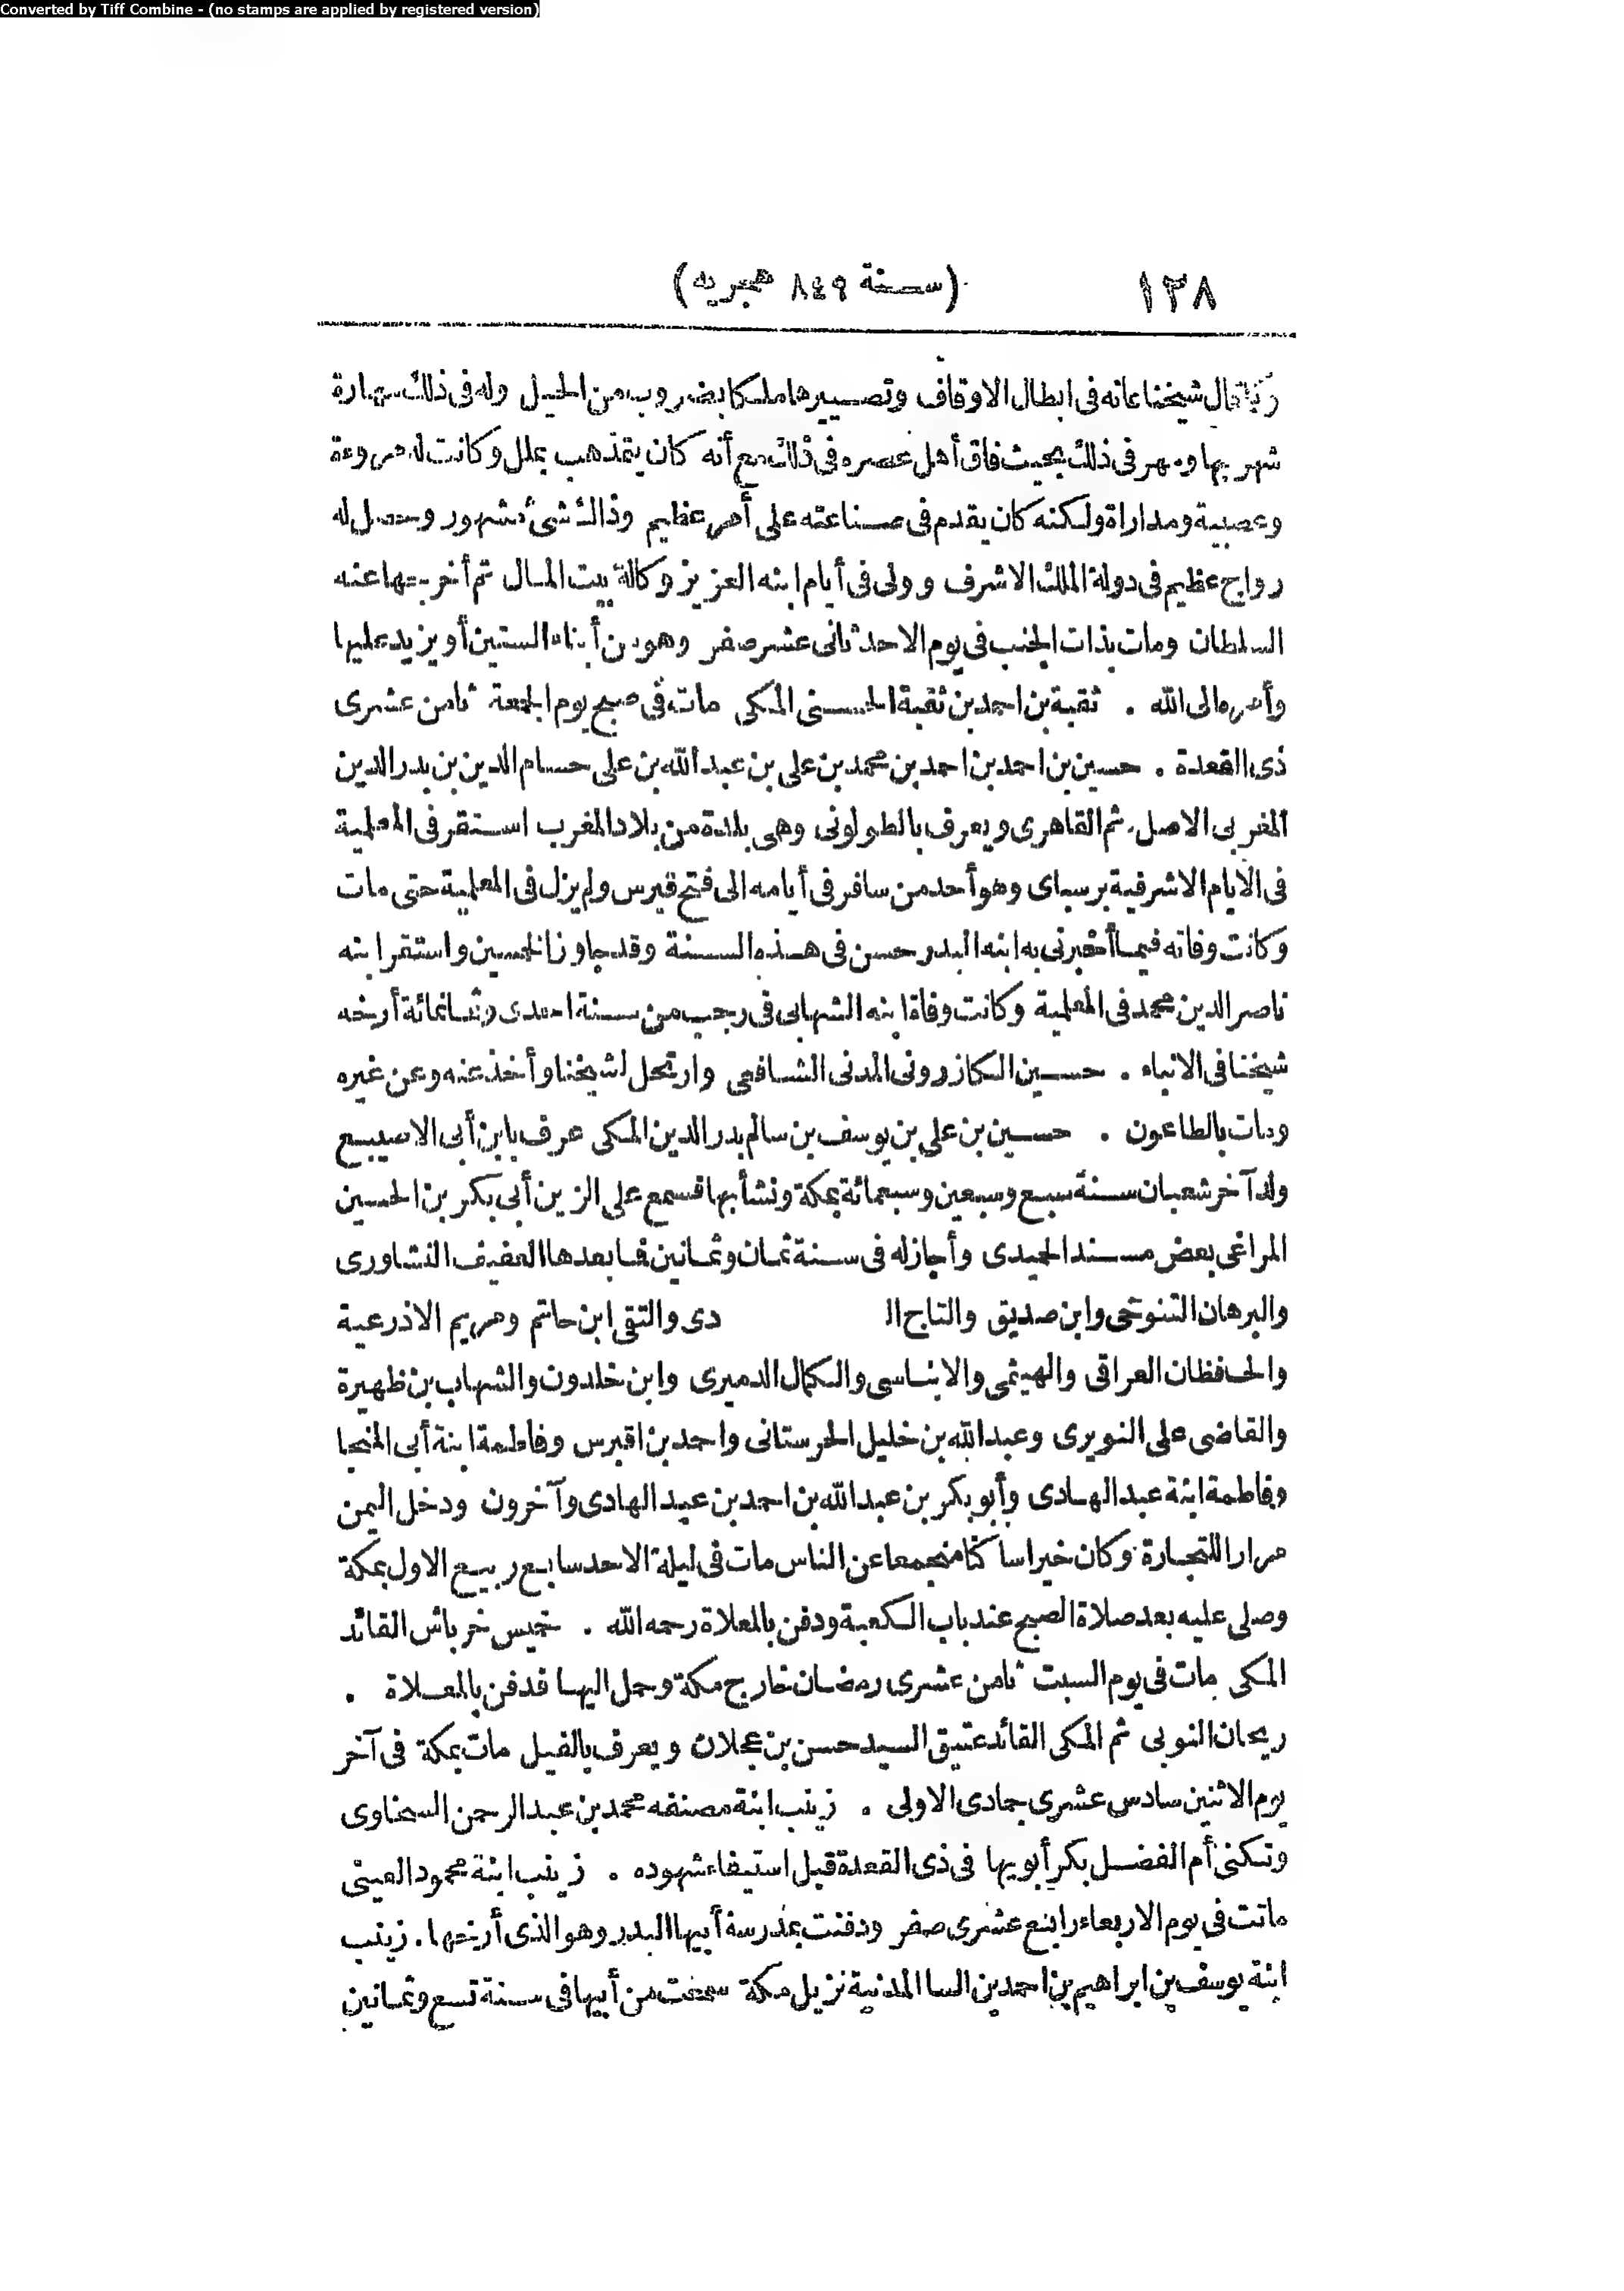 Converted by Tiff Combine - (no stamps are applied by registered version)
١٣٨ (سنة ٨٤٩ هجريه)
قال شيخنا عانه فى ابطال الاوقاف وتصييرها ملكا بضروب من الحيل وله فى ذلك مهارة
شهر بها ومهر فى ذلك بحيث فاق أهل عصره فى ذلك مع أنه كان يتمذهب بملل وكانت له مروءة
وعصبية ومداراة ولكنه كان يقدم فى صناعته على أمر عظيم وذاك شئ مشهور وحصل له
رواج عظيم فى دولة الملك الاشرف وولى فى أيام ابنه العزيز وكالة بيت المال ثم أخرجها عنه
السلطان ومات بذات الجنب فى يوم الاحد ثانى عشر صفر وهو من أبناء الستين أو يزيد عليها
وأمره الى الله . ثقبة بن احمد بن ثقبة الحسنى المكى مات فى صبح يوم الجمعة ثامن عشرى
ذى القعدة . حسين بن احمد بن احمد بن محمد بن على بن عبد الله بن على حسام الدين بن بدر الدين
المغربى الاصل ثم القاهرى ويعرف بالطولونى وهى بلدة من بلاد المغرب استقر فى المعلمية
فى الايام الاشرفية برسباى وهو أحد من سافر فى أيامه الى فتح قبرس ولم يزل فى المعلمية حتى مات
وكانت وفاته فيما أخبرنى به ابنه البدر حسن فى هذه السنة وقد جاوز الخمسين واستقر ابنه
ناصر الدين محمد فى المعلمية وكانت وفاة ابنه الشهابى فى رجب من سنة احدى وثمانمائة أرخه
شيخنا فى الانباء . حسين الكازرونى المدنى الشافعى وارتحل لشيخنا وأخذ عنه وعن غيره
ومات بالطاعون . حسين بن على بن يوسف بن سالم بدر الدين المكى عرف بابن أبى الاصيبع
ولد آخر شعبان سنة سبع وسبعين وسبعمائة بمكة ونشأ بها فسمع على الزين أبى بكر بن الحسين
المراغى بعض مسند الحميدى وأجاز له فى سنة ثمان وثمانين فما بعدها العفيف النشاورى
والبرهان التنوخى وابن صديق والتاج ال دى والتقى ابن حاتم ومريم الاذرعية
والحافظان العراقى والهيثمى والابناسى والكمال الدميرى وابن خلدون والشهاب بن ظهيرة
والقاضى على النويرى وعبد الله بن خليل الحرستانى واحمد بن اقبرس وفاطمة ابنة أبى المنجا
وفاطمة ابنة عبد الهادى وأبو بكر بن عبد الله بن احمد بن عبد الهادى وآخرون ودخل اليمن
مرارا للتجارة وكان خيرا ساكنا منجمعا عن الناس مات فى ليلة الاحد سابع ربيع الاول بمكة
وصلى عليه بعد صلاة الصبح عند باب الكعبة ودفن بالمعلاة رحمه الله . خميس خرباش القائد
المكى مات فى يوم السبت ثامن عشرى رمضان خارج مكة وحمل اليها فدفن بالمعلاة .
ريحان النوبى ثم المكى القائد عتيق السيد حسن بن عجلان ويعرف بالفيل مات بمكة فى آخر
يوم الاثنين سادس عشرى جمادى الاولى . زينب ابنة مصنفه محمد بن عبد الرحمن السخاوى
وتكنى أم الفضل بكر أبويها فى ذى القعدة قبل استيفاء شهوده . زينب ابنة محمود العينى
ماتت فى يوم الاربعاء رابع عشرى صفر ودفنت بمدرسة أبيها البدر وهو الذى أرخها . زينب
ابنة يوسف بن ابراهيم بن احمد بن السا المدنية نزيل مكة سمعت من أبيها فى سنة تسع وثمانين